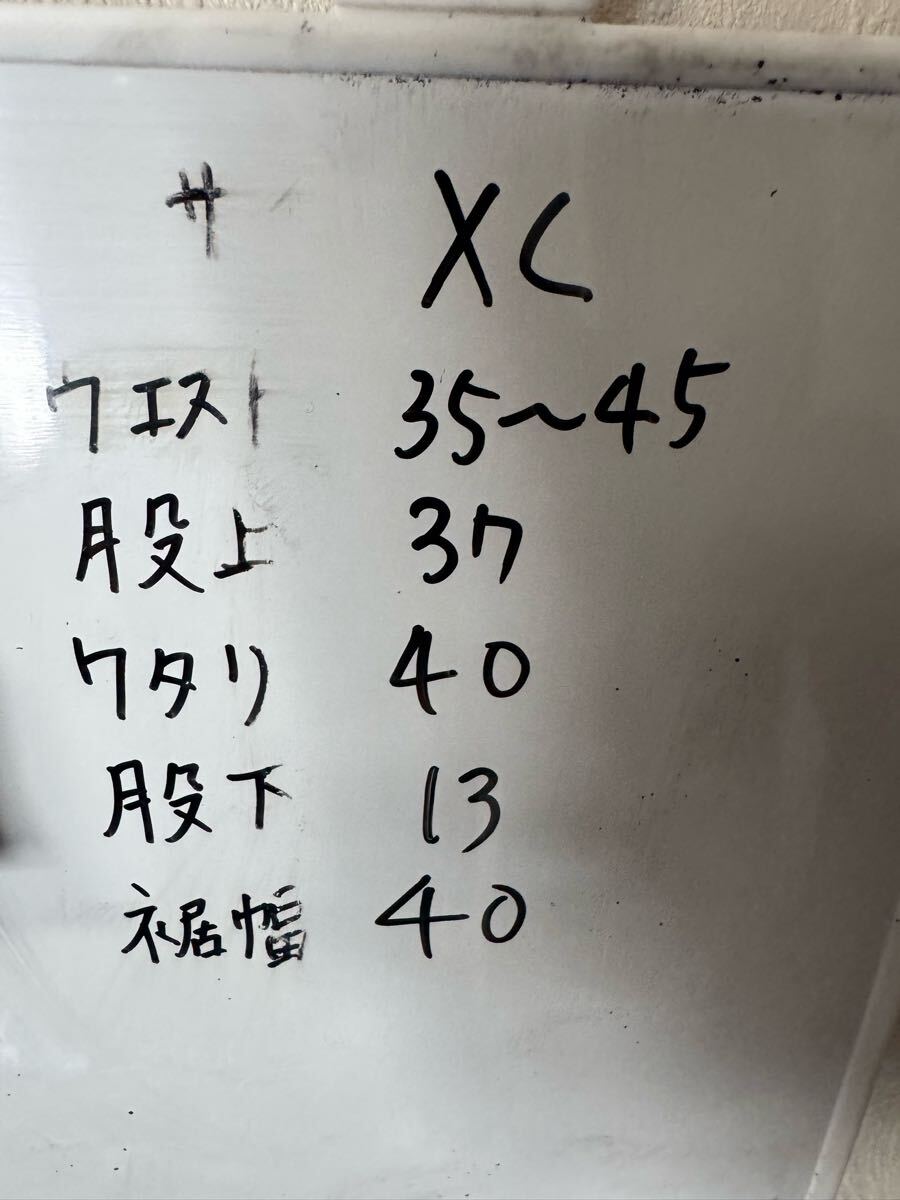 サ XL
ウエスト 35~45
股上 37
ワタリ 40
股下 13
裾幅 40